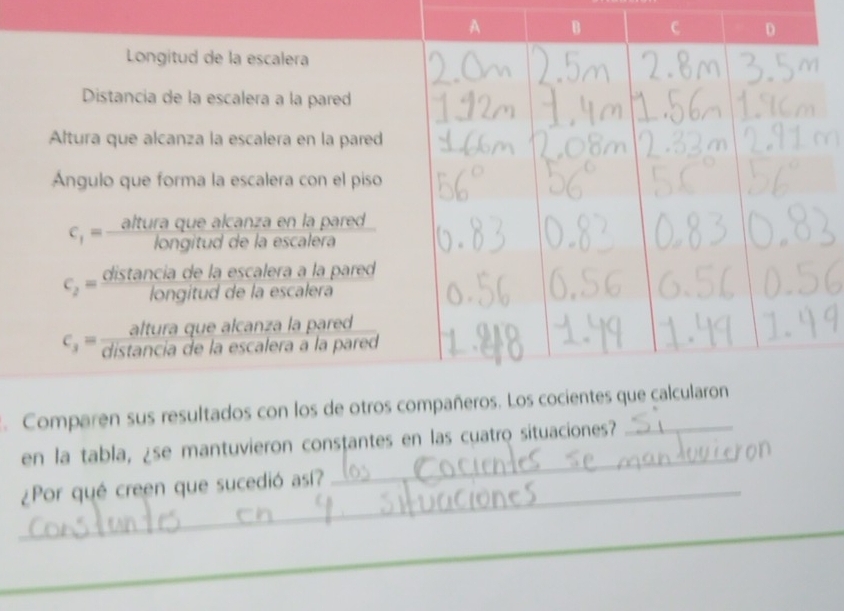 A B C D
Longitud de la escalera 2.0m 2.5m 2.8m 3.5m
Distancia de la escalera a la pared 1.12m 1.4m 1.56m 1.96m
Altura que alcanza la escalera en la pared 1.66m 2.08m 2.33m 2.91m
Ángulo que forma la escalera con el piso 56° 56° 56° 56°
c₁ = altura que alcanza en la pared / longitud de la escalera 0.83 0.83 0.83 0.83
c₂ = distancia de la escalera a la pared / longitud de la escalera 0.56 0.56 0.56 0.56
c₃ = altura que alcanza la pared / distancia de la escalera a la pared 1.48 1.49 1.49 1.49
. Comparen sus resultados con los de otros compañeros. Los cocientes que calcularon
en la tabla, ¿se mantuvieron constantes en las cuatro situaciones? Si
¿Por qué creen que sucedió así? los cocientes se mantuvieron
constantes en 4 situaciones